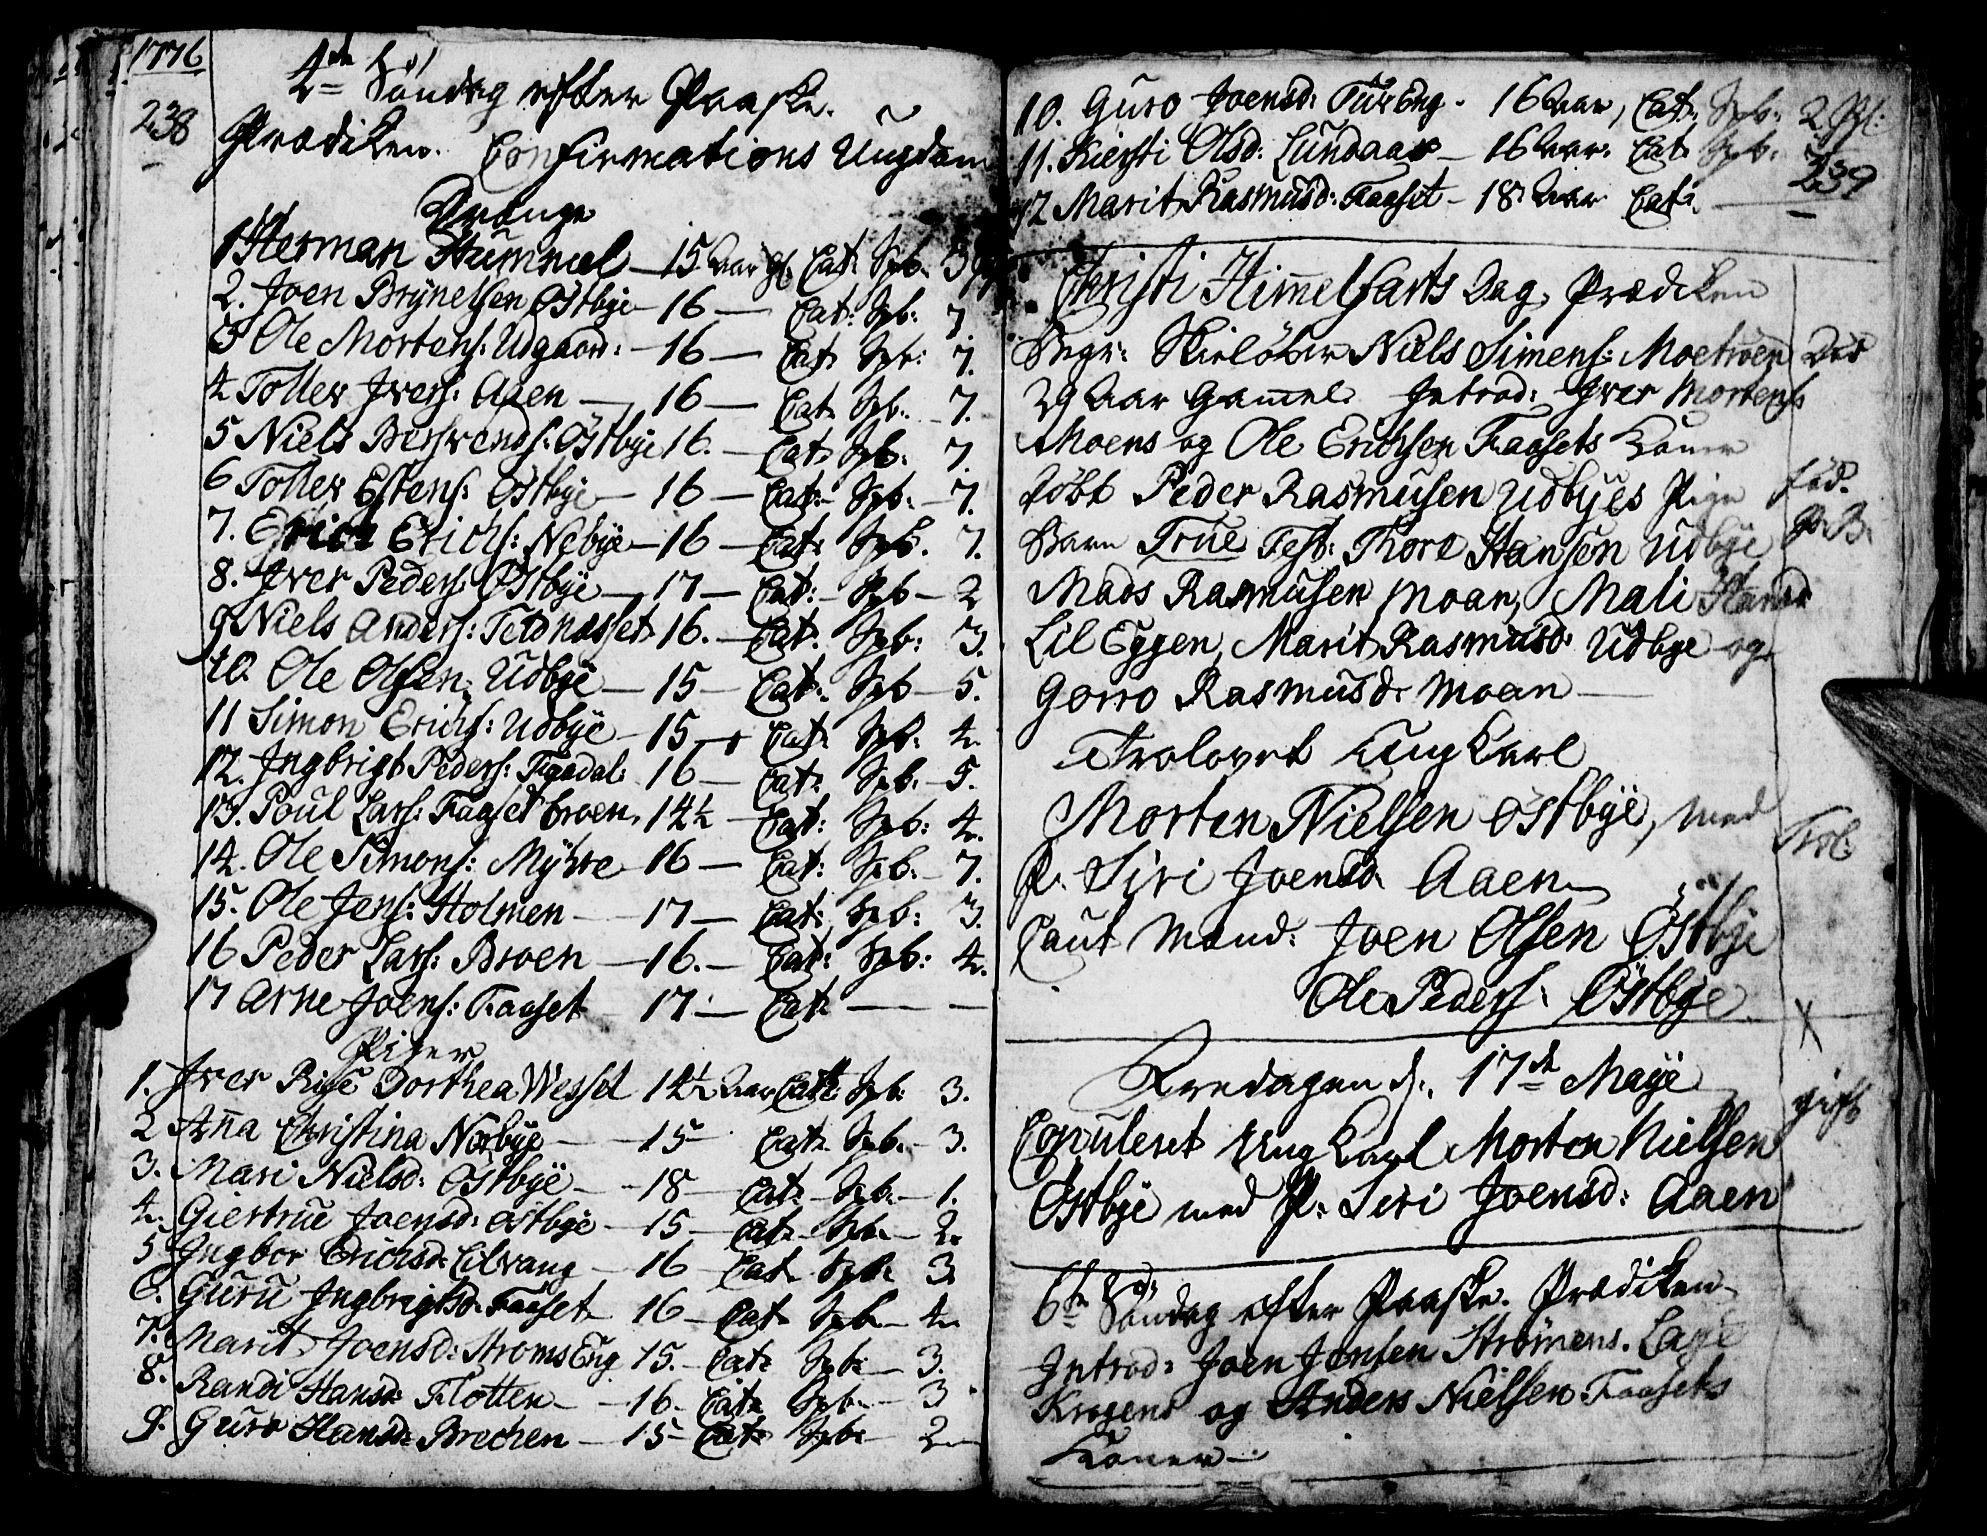 1776
238
4de Søndag efter Paaske.
Prædiken. Confirmations Ungdom
Drænge
1 Herman Hummel — 15 Aar gl. Cat: Spb. 3
2. Joen Brynelsen Østbye — 16 — Cat: Spb: 7
3 Ole Mortens: Udgaard: — 16 — Cat: Spb: 7.
4 Toller Ivers: Aaen — 16 — Cat: Spb. 7.
5 Niels Bersvends: Østbye 16. — Cat: Spb: 7.
6 Toller Estens: Østbye — 16 — Cat: Spb. — 7.
7. Erich Erichs: Nebye — 16 — Cat: Spb. 7.
8. Iver Peders: Østbye — 17 — Cat: Spb — 2
9 Niels Anders: Teldnæsset 16. — Cat: Spb: 3.
10. Ole Olsen Udbye — 15 — Cat: Spb — 5.
11 Simon Erichs: Udbye — 15 — Cat: Spb. 4.
12. Ingbrigt Peders: Fyadal. 16 — Cat: Spb. — 5.
13. Poul Lars: Faaset broen, 14½ — Cat: Spb: 4.
14. Ole Simons: Myhre — 16 — Cat: Spb. — 7.
15. Ole Jens: Holmen — 17 — Cat: Spb: 3.
16 Peder Lars: Broen — 16. — Cat: Spb: 4.
17 Arne Joens: Faaset — 17 — Cat: —
Piger
1. Iver Rise Dorthea Wessel 14½ Aar Cat: Spb: 3.
2 Anna Christina Norbye — 15 — Cat: Spb. — 3.
3. Mari Nielsd: Østbye — 18 — Cat: Spb. — 1.
4. Giertrue Joensd: Østbye — 15 — Cat: Spb. — 2.
5 Ingbor Erichsd: Lilvang — 16 — Cat: Spb: 3.
6. Guru Ingbrigtsd: Faaset 16 — Cat: Spb. — 4.
7. Marit Joensd: StromsEng 15. — Cat: Spb: — 3.
8. Randi Hansd: Flotten — 16. — Cat: Spb. — 3
9. Guro Hansd: Brechen — 15 — Cat: Spb: 2
10. Guro Joensd: TurEng. 16 Aar, Cat: Spb: 2 gl:
11. Kiersti Olsd: Lundaas — 16 Aar. Cat: Spb:
12 Marit Rasmusd: Faaset — 18 Aar Cat: —
239
Christi Himmelfarts Dag, Prædiken
Begr: Skieløber Niels Simens: Moetrøen Død
29 Aar gammel. Introd: Iver Mortens
Moens og Ole Erichsen Faasets Koner
døbt Peder Rasmusen Udbyes Pige fød.
Barn True Test: Thore Hansen Udbye P: B:
Mads Rasmusen Moan, Mali
Lil Eggen, Marit Rasmusd: Udbye og
Gorro Rasmusd: Moan —
Trolovet Ung Karl
Morten Nielsen Østbye, med Trol:
P. Siri Joensd: Aaen
Caut Mænd: Joen Olsen Østbye
Ole Peders: Østbye
X
Fredagen d: 17de Maye
Copuleret Ung Karl Morten Nielsen gift
Østbye med P: Siri Joensd: Aaen
6te Søndag efter Paaske. Prædiken
Introd: Joen Jonsen Strømens. Lasse
Krogens og Anders Nielsen Faasets
Koner —